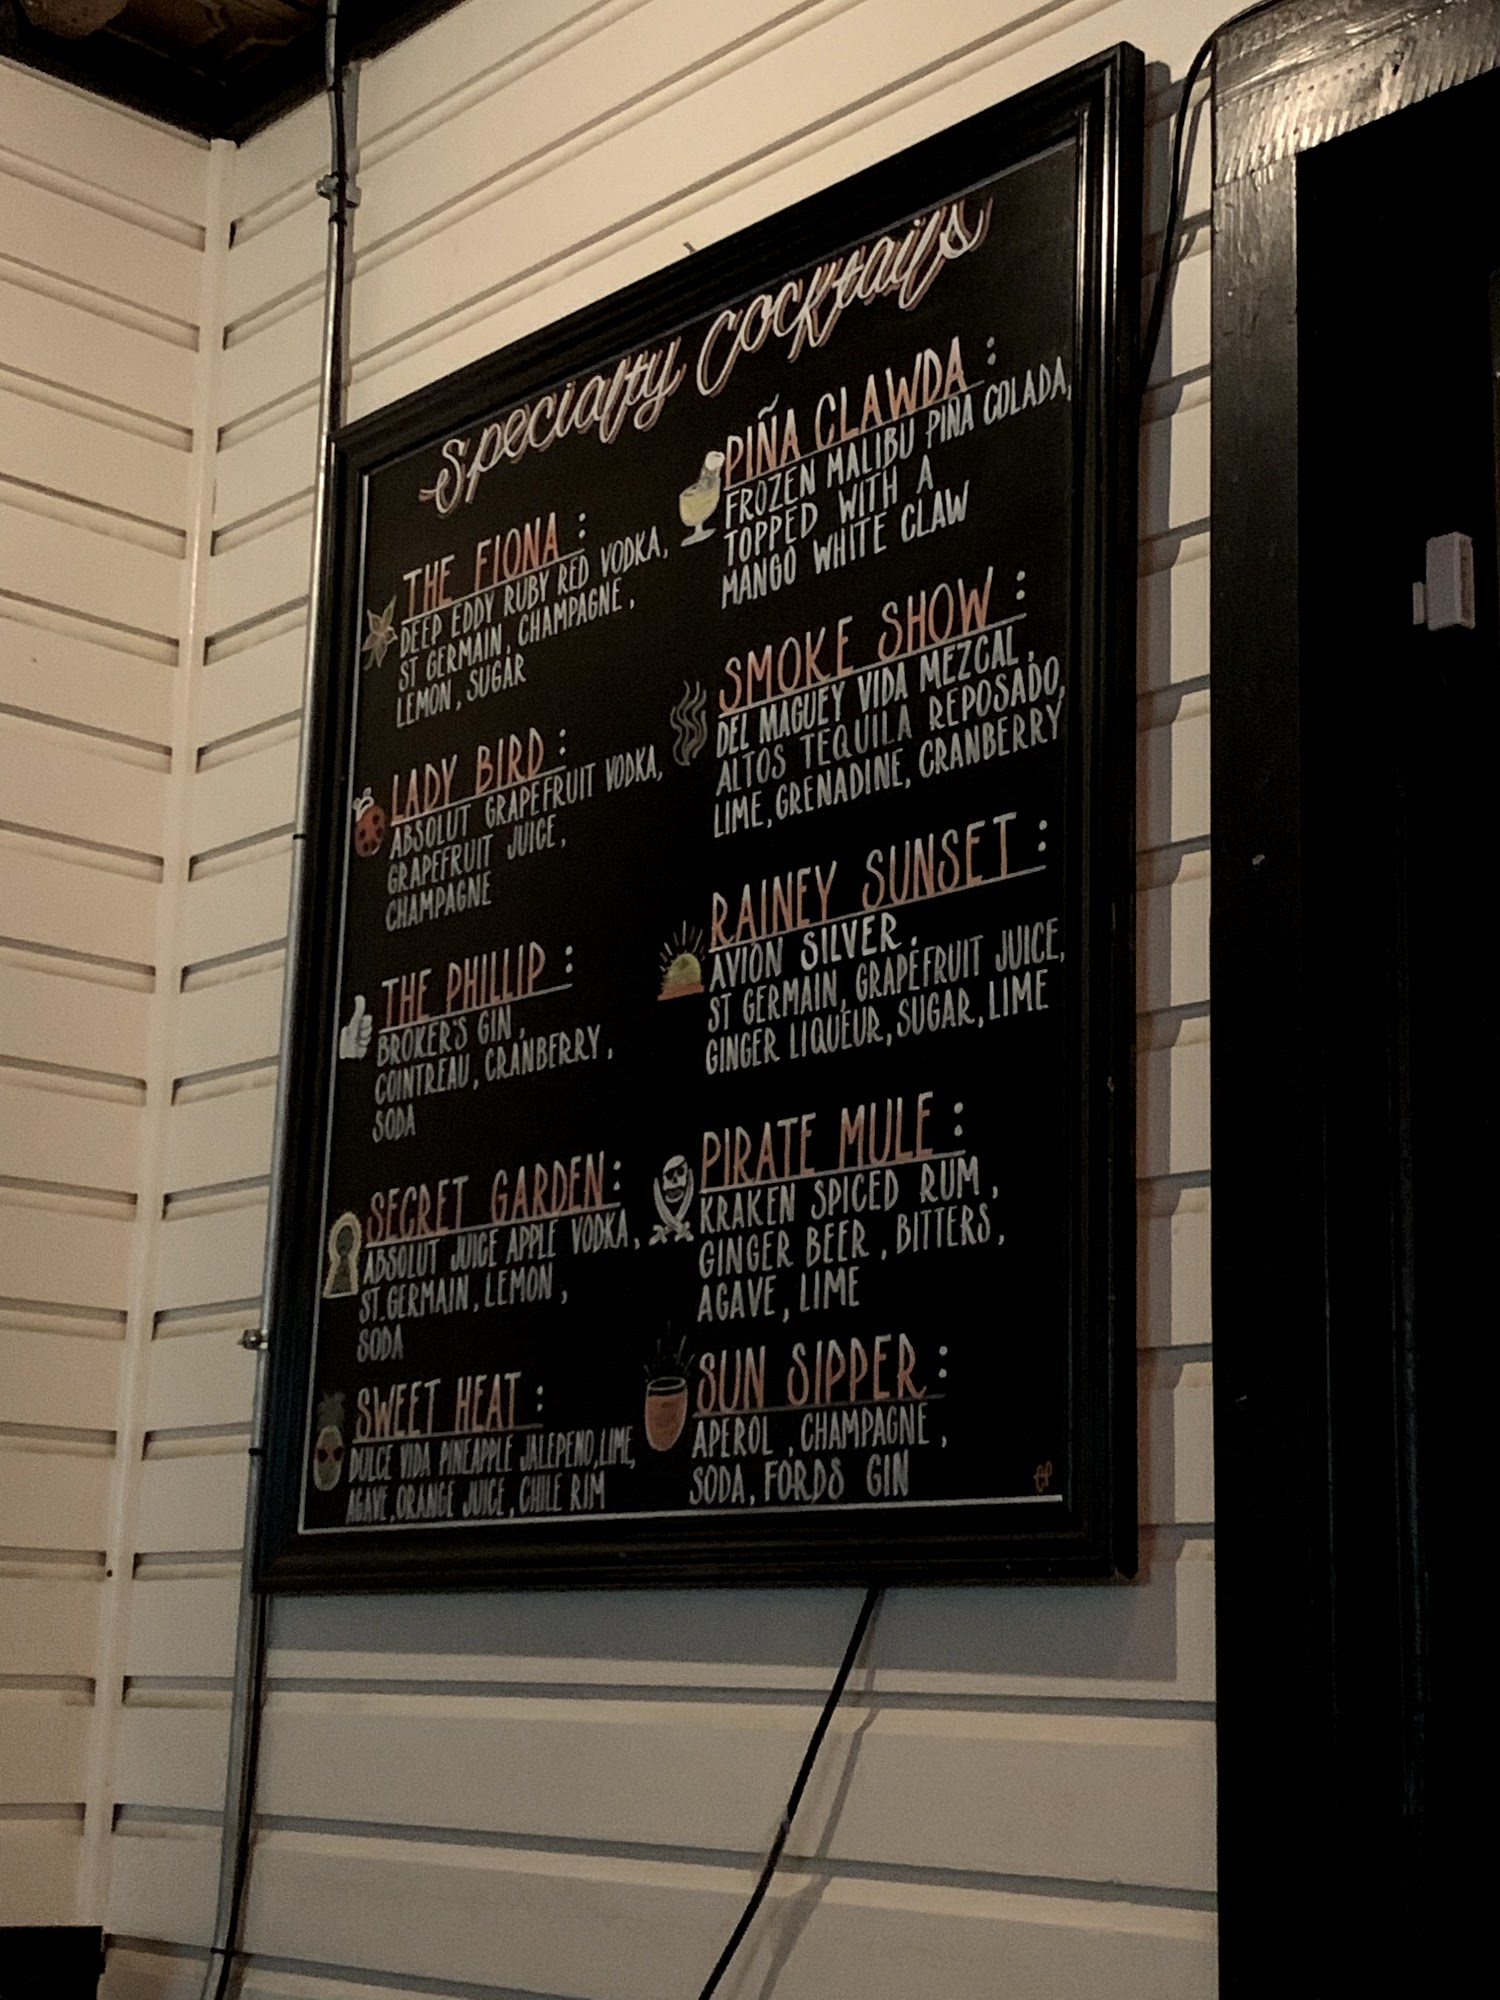 Specialty Cocktails
THE FIONA :
DEEP EDDY RUBY RED VODKA,
ST GERMAIN, CHAMPAGNE,
LEMON, SUGAR
LADY BIRD :
ABSOLUT GRAPEFRUIT VODKA,
GRAPEFRUIT JUICE,
CHAMPAGNE
THE PHILLIP :
BROKER'S GIN,
COINTREAU, CRANBERRY,
SODA
SECRET GARDEN:
ABSOLUT JUICE APPLE VODKA,
ST. GERMAIN, LEMON,
SODA
SWEET HEAT :
DULCE VIDA PINEAPPLE JALEPENO, LIME,
AGAVE, ORANGE JUICE, CHILE RIM
PIÑA CLAWDA :
FROZEN MALIBU PIÑA COLADA,
TOPPED WITH A
MANGO WHITE CLAW
SMOKE SHOW :
DEL MAGUEY VIDA MEZCAL,
ALTOS TEQUILA REPOSADO,
LIME, GRENADINE, CRANBERRY
RAINEY SUNSET :
AVION SILVER,
ST GERMAIN, GRAPEFRUIT JUICE,
GINGER LIQUEUR, SUGAR, LIME
PIRATE MULE :
KRAKEN SPICED RUM,
GINGER BEER, BITTERS,
AGAVE, LIME
SUN SIPPER :
APEROL, CHAMPAGNE,
SODA, FORDS GIN